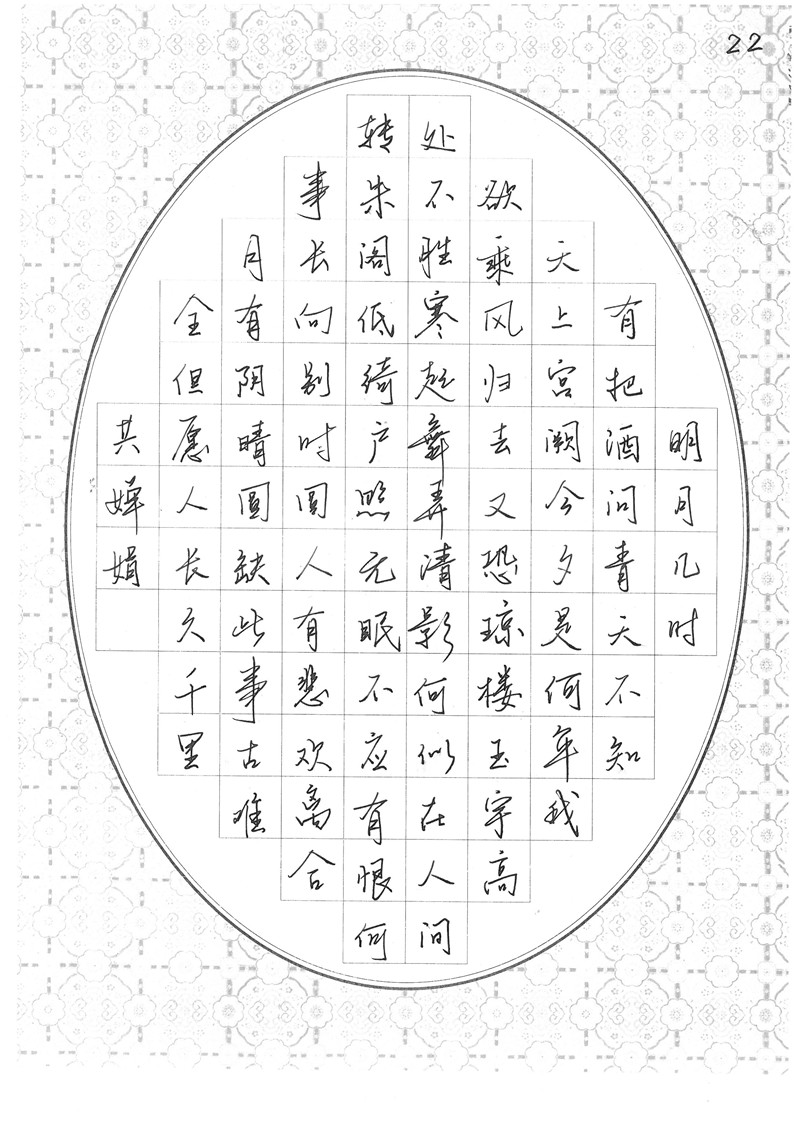 22
明月几时
有把酒问青天不知
天上宫阙今夕是何年我
欲乘风归去又恐琼楼玉宇高
处不胜寒起舞弄清影何似在人间
转朱阁低绮户照无眠不应有恨何
事长向别时圆人有悲欢离合
月有阴晴圆缺此事古难
全但愿人长久千里
共婵娟